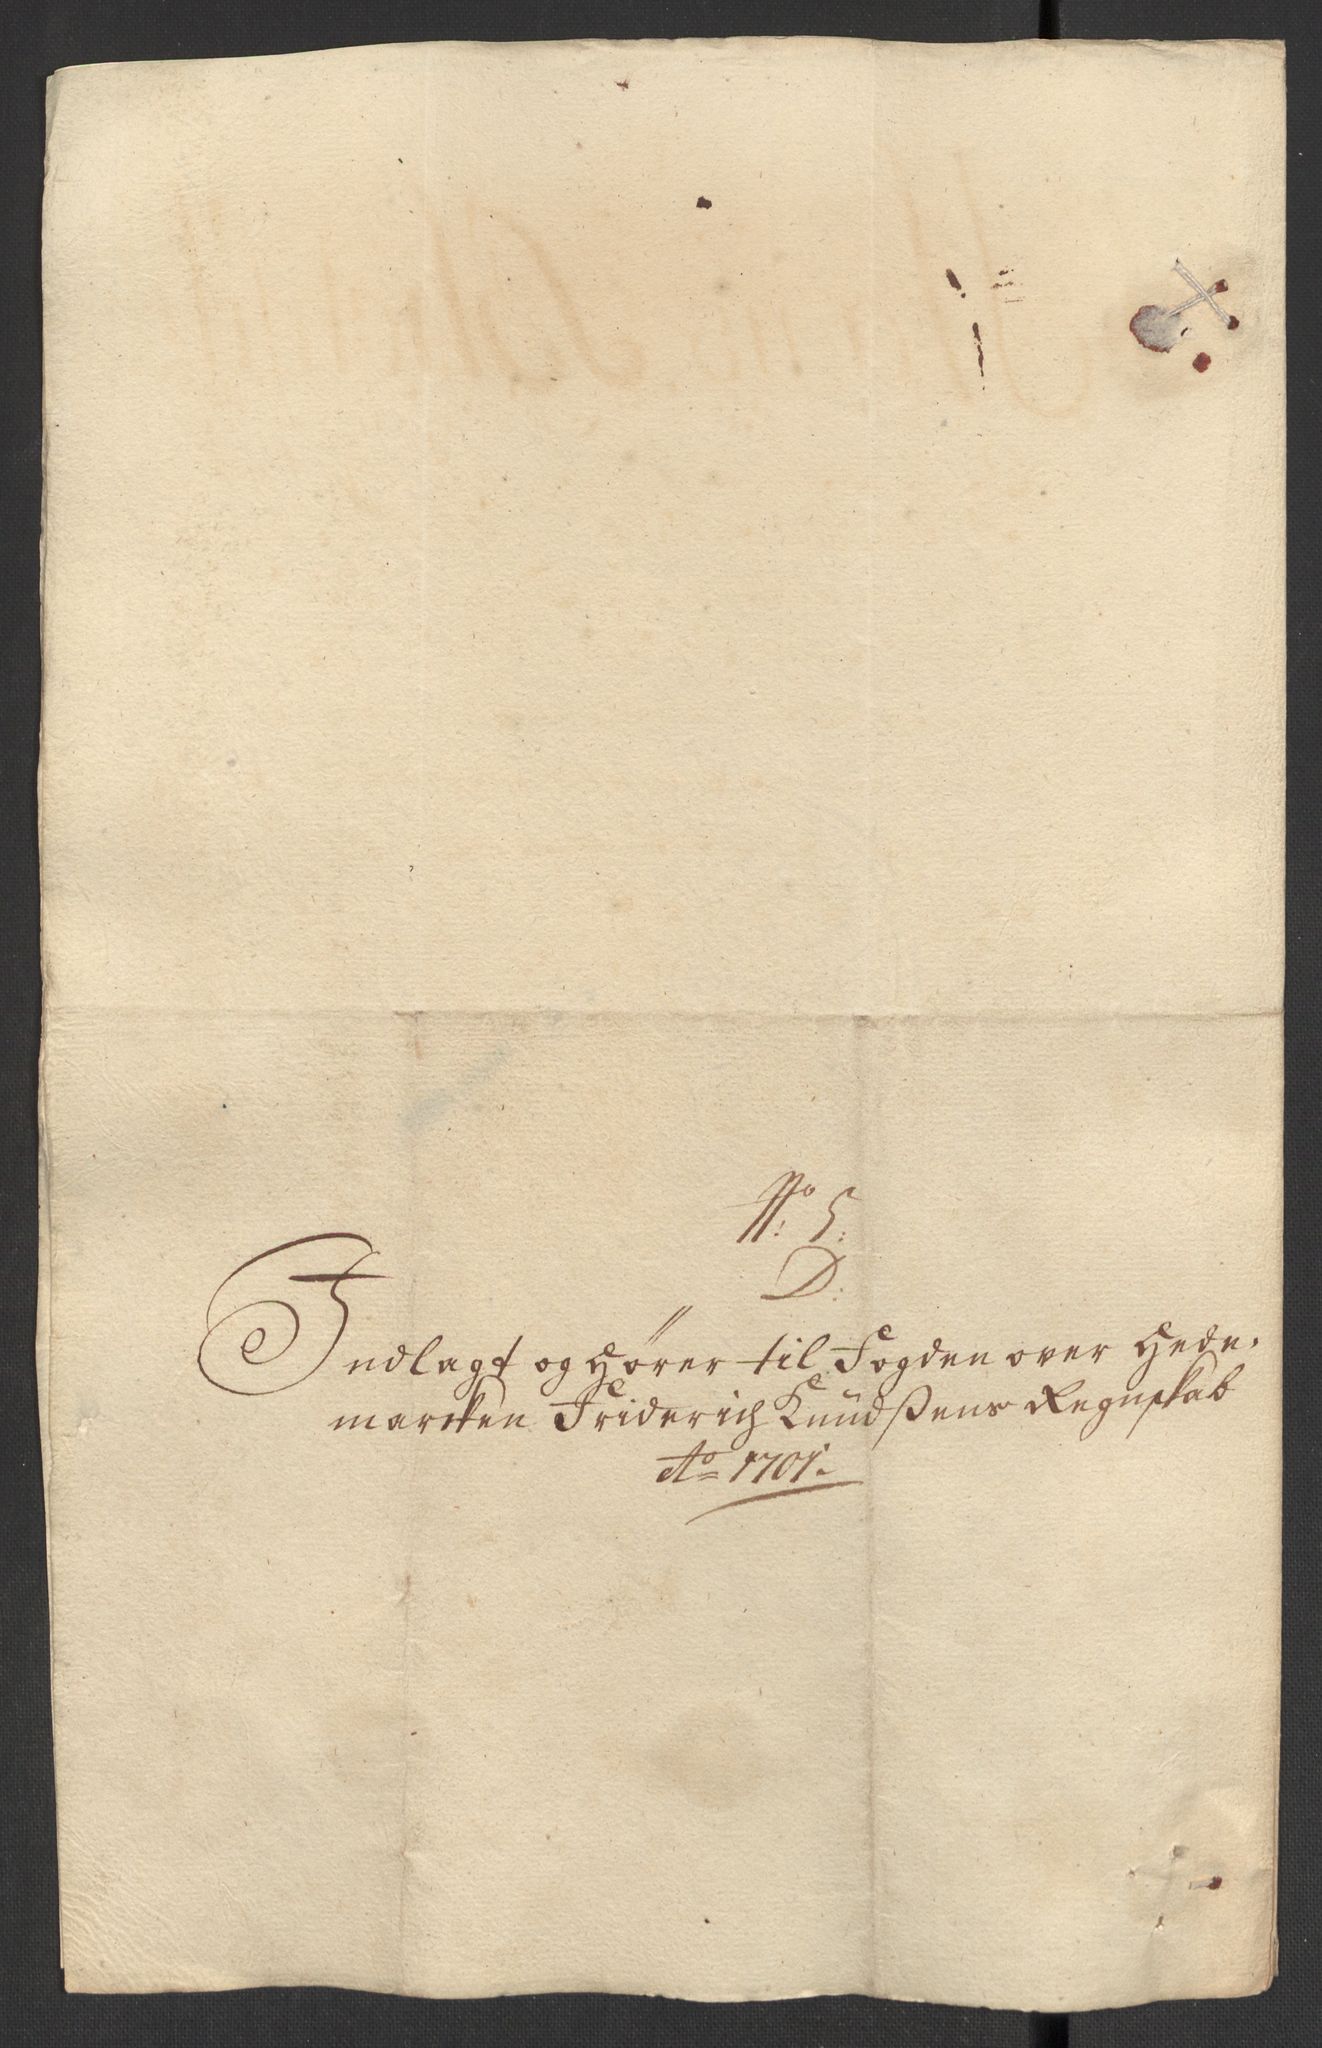 No: 5:
D:
Indlagt og Hører til Fogden over Hede-
marcken Friderich Knudßens Regnskab
Ao 1701.